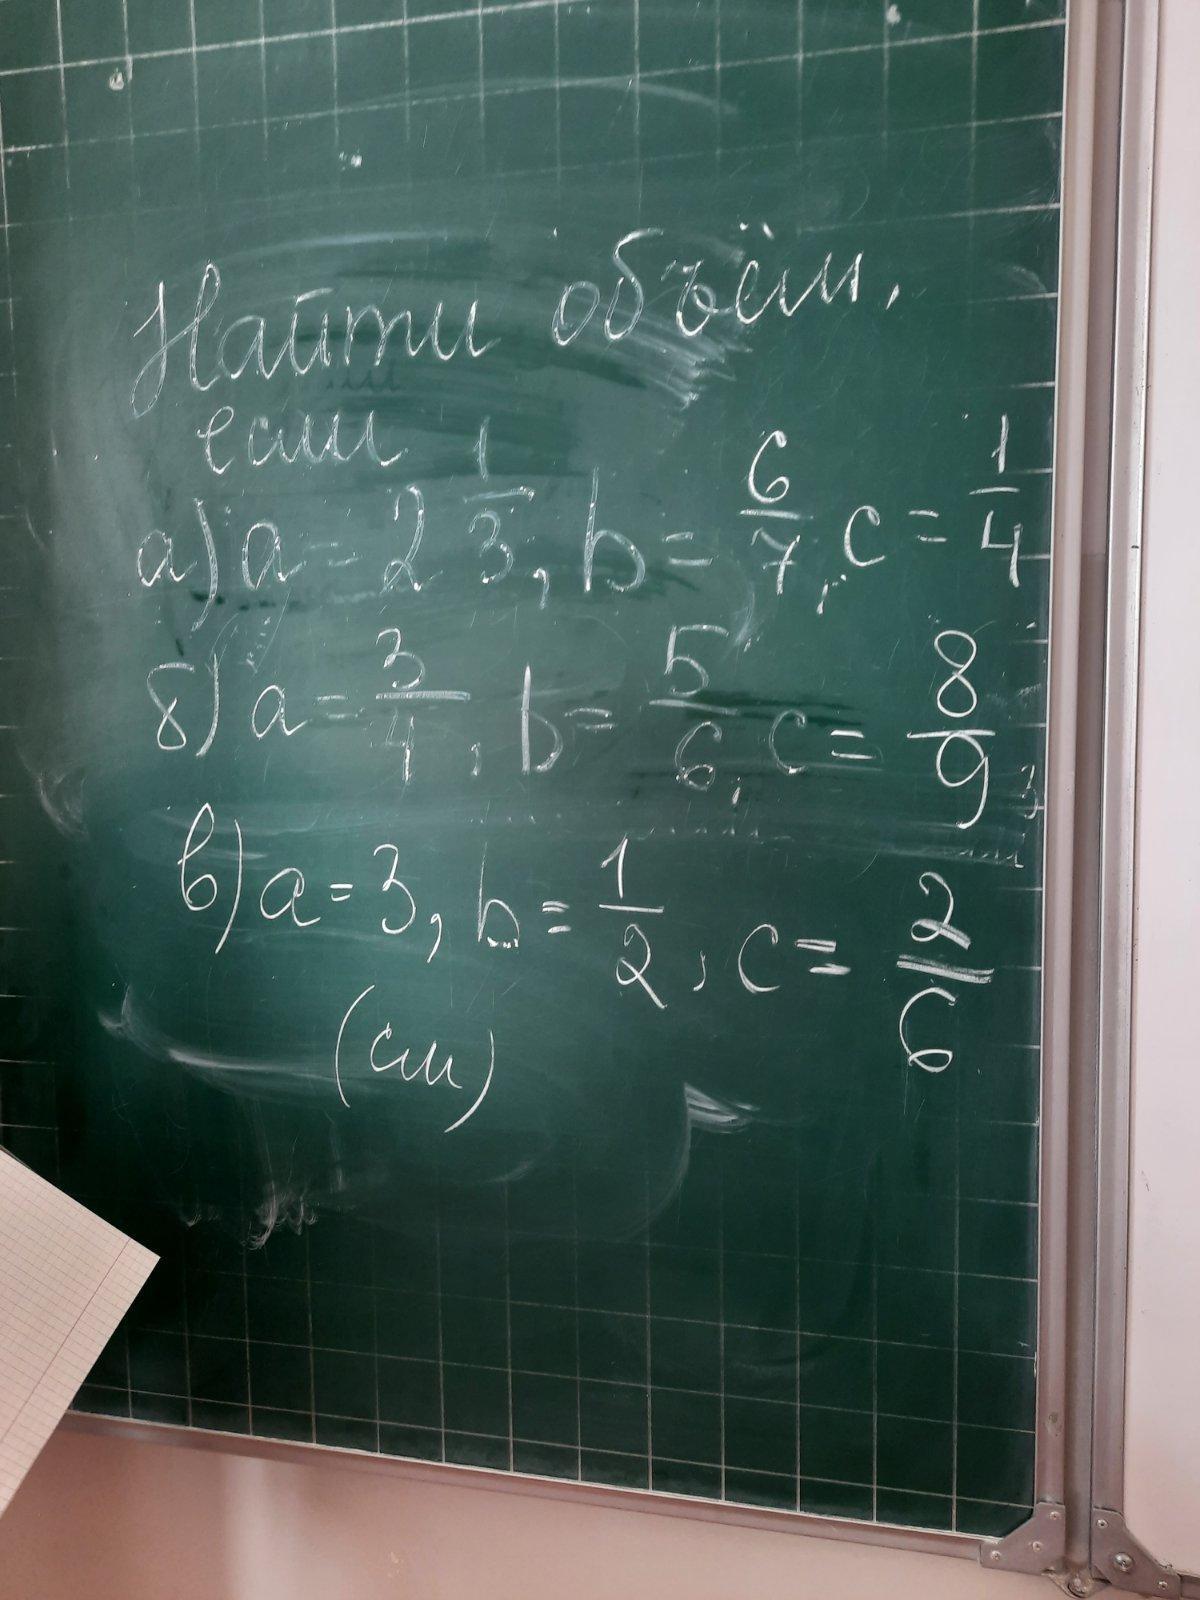 Найти объём,
если
а) a = 2 1/3, b = 6/7, c = 1/4
б) a = 3/4, b = 5/6, c = 8/9
в) a = 3, b = 1/2, c = 2/6
(см)